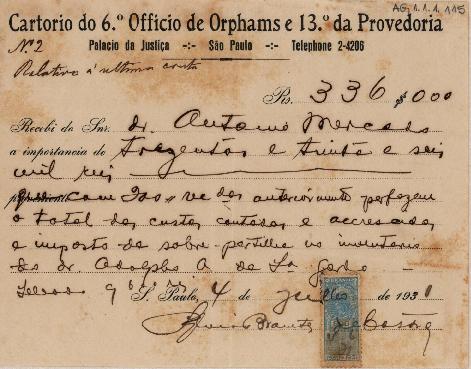 AG.1.1.1.115
Cartorio do 6.º Officio de Orphams e 13.º da Provedoria
Nº 2
Palacio da Justiça -:- São Paulo -:- Telephone 2-4206
Relativo á ultima conta
Rs. 336$000
Recebi do Snr. dr. Antonio Mercado
a importancia de trezentos e trinta e seis
mil reis
que com anteriormente perfazem
o total das custas contadas e accrescidas
e imposto de sobre-partilha no inventario
do dr. Adolpho A. de
S. Paulo, 4 de Julho 1931